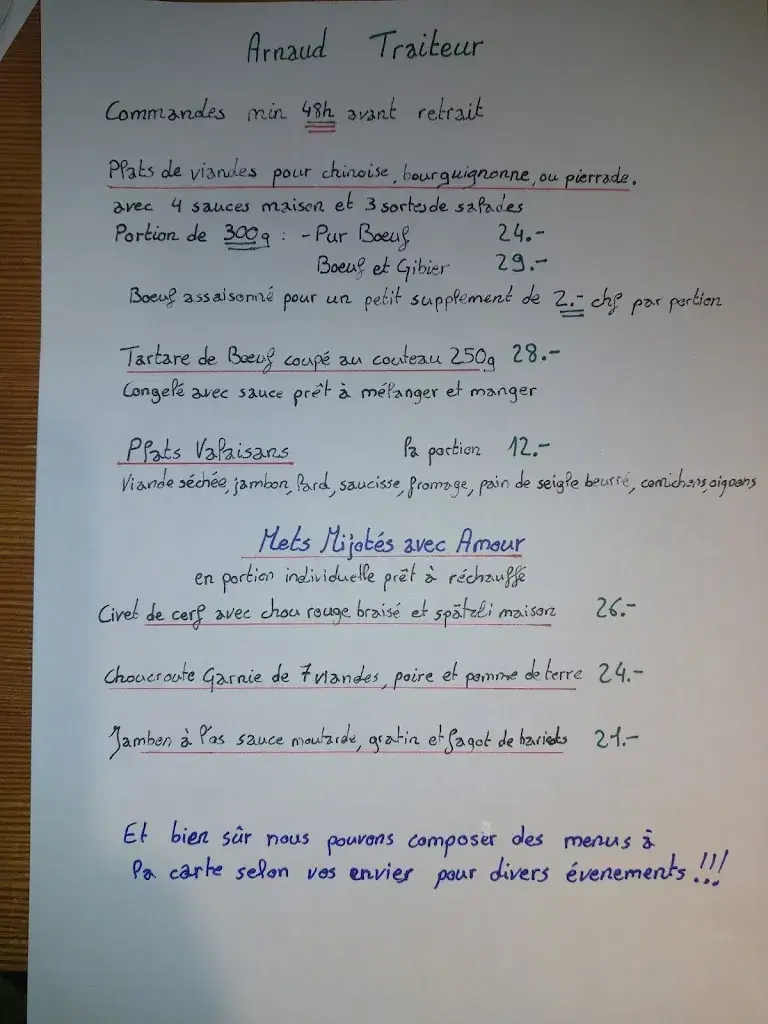 Arnaud Traiteur
Commandes min 48h avant retrait
Plats de viandes pour chinoise, bourguignonne, ou pierrade.
avec 4 sauces maison et 3 sortes de salades
Portion de 300g : - Pur Boeuf 24.-
Boeuf et Gibier 29.-
Boeuf assaisonné pour un petit supplement de 2.- chf par portion
Tartare de Boeuf coupé au couteau 250g 28.-
Congelé avec sauce prêt à mélanger et manger
Plats Valaisans la portion 12.-
Viande séchée, jambon, lard, saucisse, fromage, pain de seigle beurré, cornichons, oignons
Mets Mijotés avec Amour
en portion individuelle prêt à réchauffé
Civet de cerf avec chou rouge braisé et spätzli maison 26.-
Choucroute Garnie de 7 viandes, poire et pomme de terre 24.-
Jambon à l'os sauce moutarde, gratin et fagot de haricots 21.-
Et bien sûr nous pouvons composer des menus à
la carte selon vos envies pour divers évenements !!!